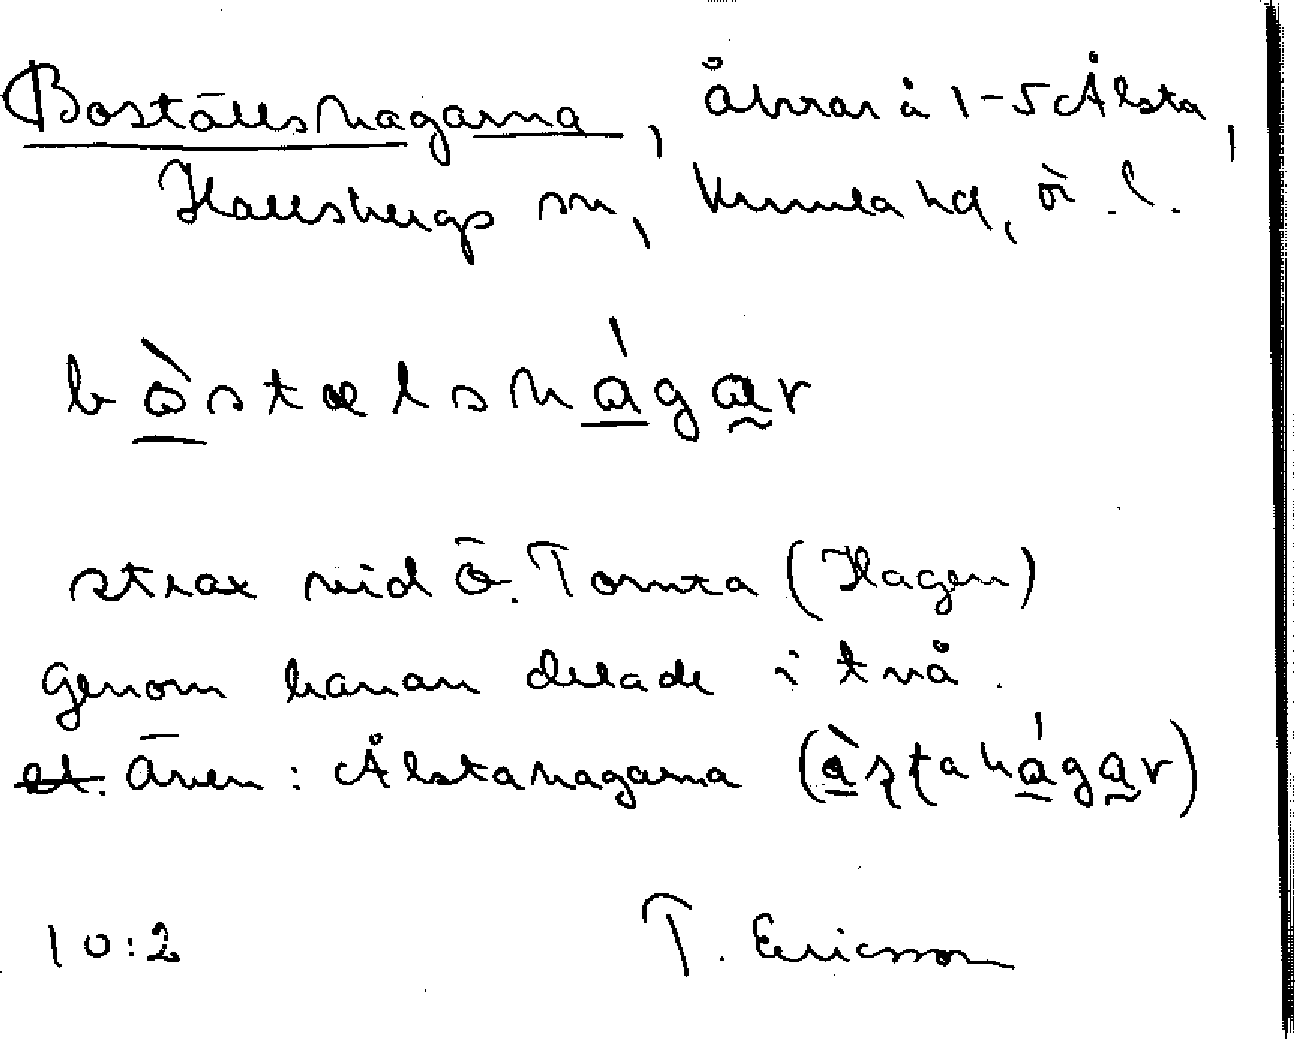 Boställshagarna, åkrar å 1-5 Ålsta,
Hallsbergs sn, Kumla hd, Ör. l.
bòstælshágar
strax vid Ö. Tomta (Hagen)
genom banan delade i två.
Även: Ålstahagarna (àstahágar)
10:2 T. Ericsson